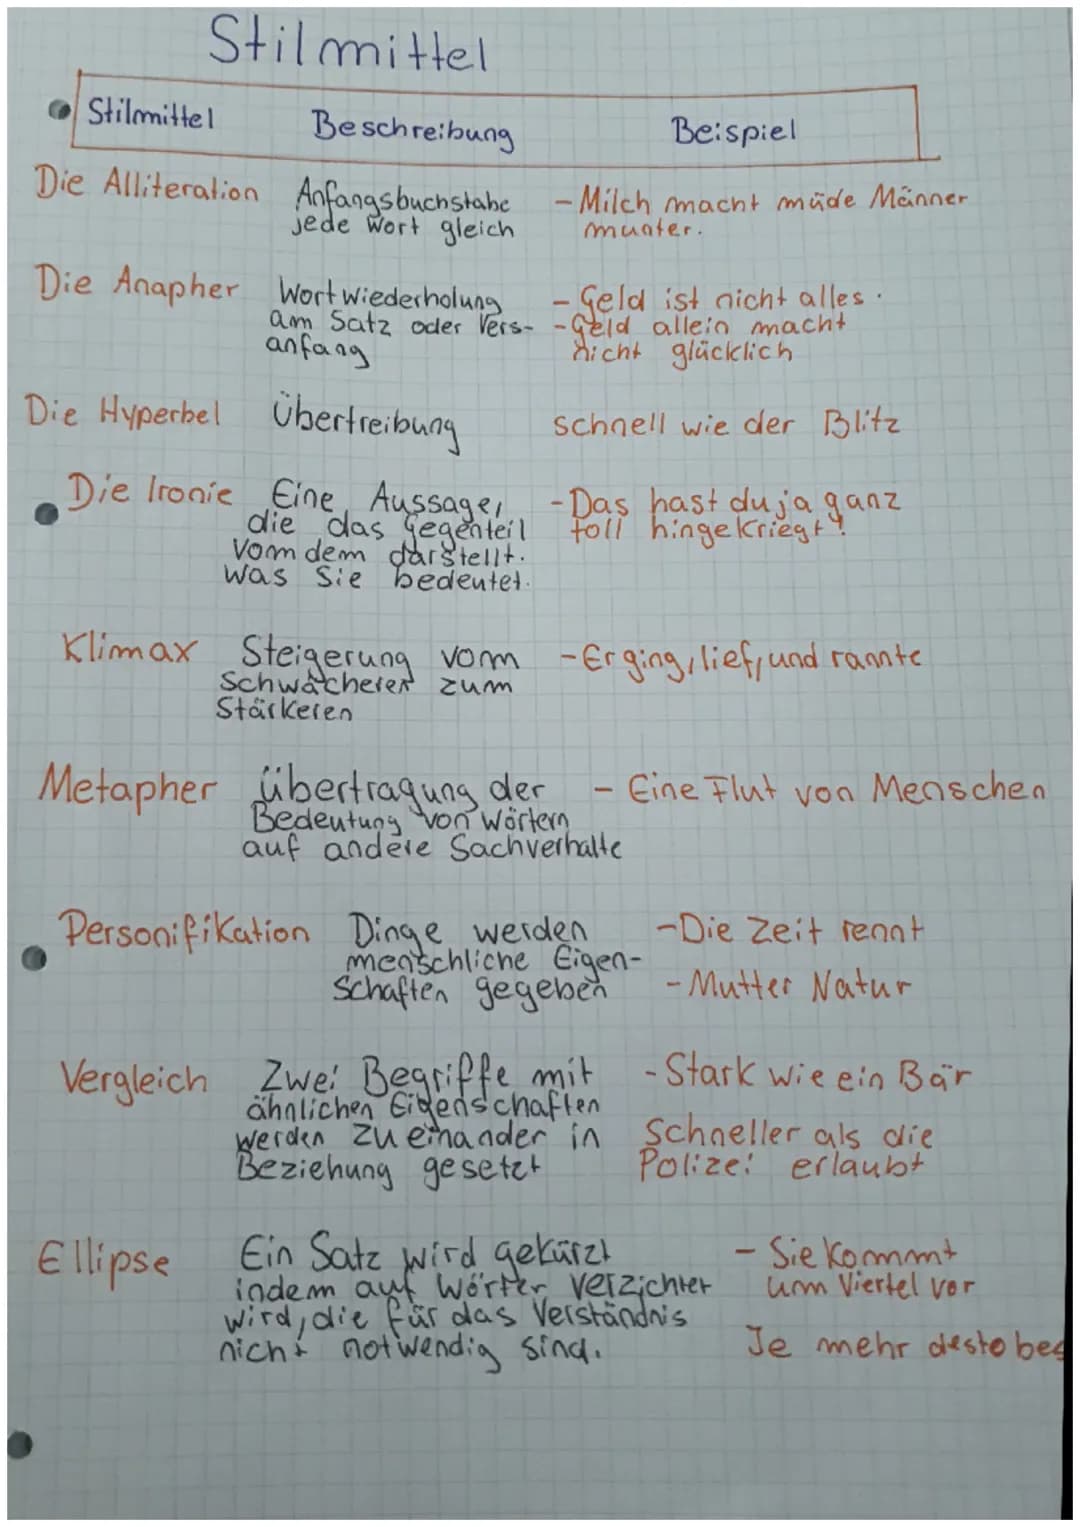 Stilmittel
Stilmittel Beschreibung Beispiel
Die Alliteration Anfangsbuchstabe - Milch macht müde Männer
jede Wort gleich munter.
Die Anapher Wortwiederholung - Geld ist nicht alles.
am Satz oder Vers- - Geld allein macht
anfang nicht glücklich
Die Hyperbel Übertreibung schnell wie der Blitz
Die Ironie Eine Aussage, - Das hast du ja ganz
die das Gegenteil toll hingekriegt!
Vom dem darstellt.
was Sie bedeutet.
Klimax Steigerung vom - Er ging, lief, und rannte
Schwächeren zum
Stärkeren
Metapher übertragung der - Eine Flut von Menschen
Bedeutung von Wörtern
auf andere Sachverhalte
Personifikation Dinge werden - Die Zeit rennt
menschliche Eigen-
schaften gegeben - Mutter Natur
Vergleich Zwei Begriffe mit - Stark wie ein Bär
ähnlichen Eigenschaften
werden zueinander in Schneller als die
Beziehung gesetzt Polizei erlaubt
Ellipse Ein Satz wird gekürzt - Sie kommt
indem auf Wörter verzichtet um Viertel vor
wird, die für das Verständnis
nicht notwendig sind. Je mehr desto bes